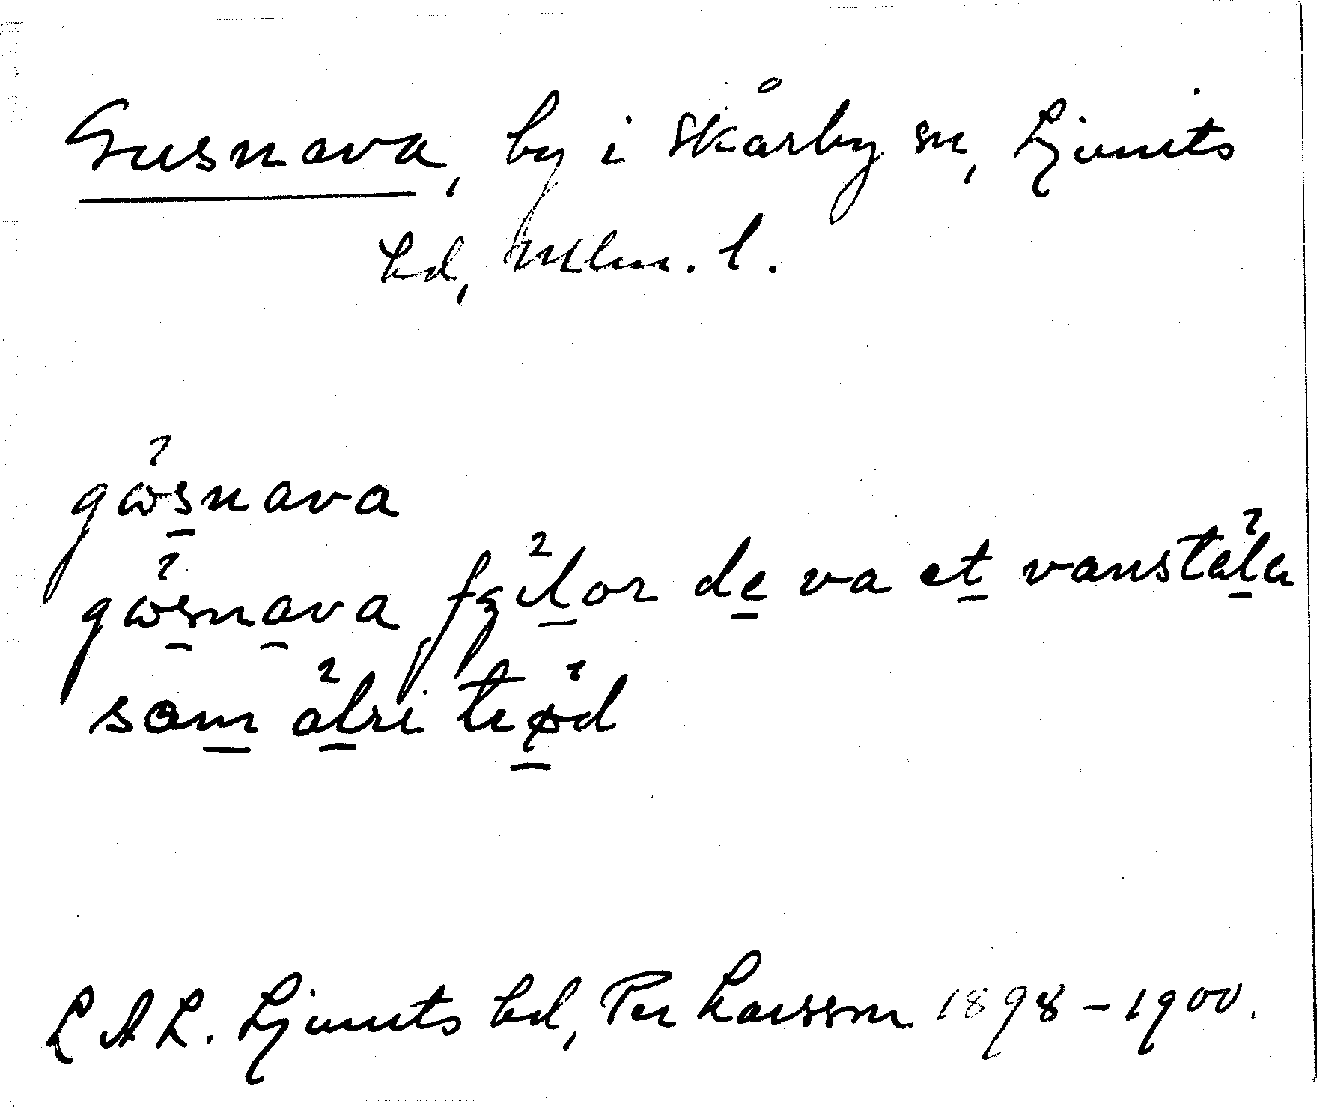 Gusnava, by i Skårby sn, Ljunits
hd, Mlm. l.
gώsnava
gώsnava fʒilor de va et vanstäla
som alri teød
L A L. Ljunits hd, Per Larsson 1898-1900.